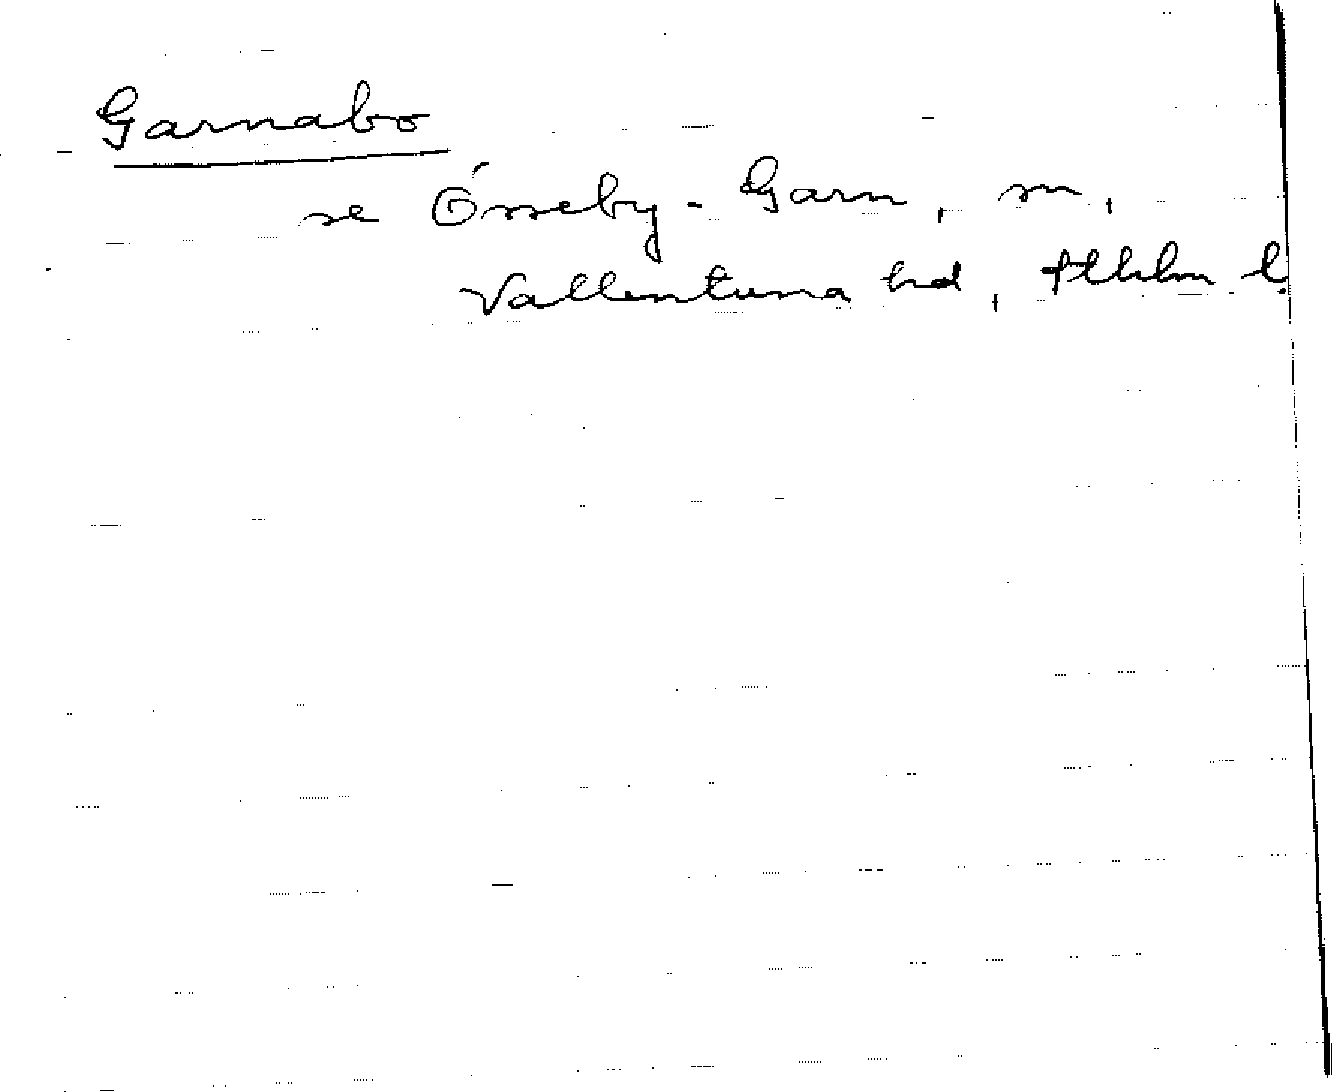 Garnabo
se Össeby-Garn, sn,
Vallentuna hd, Sthlm l.